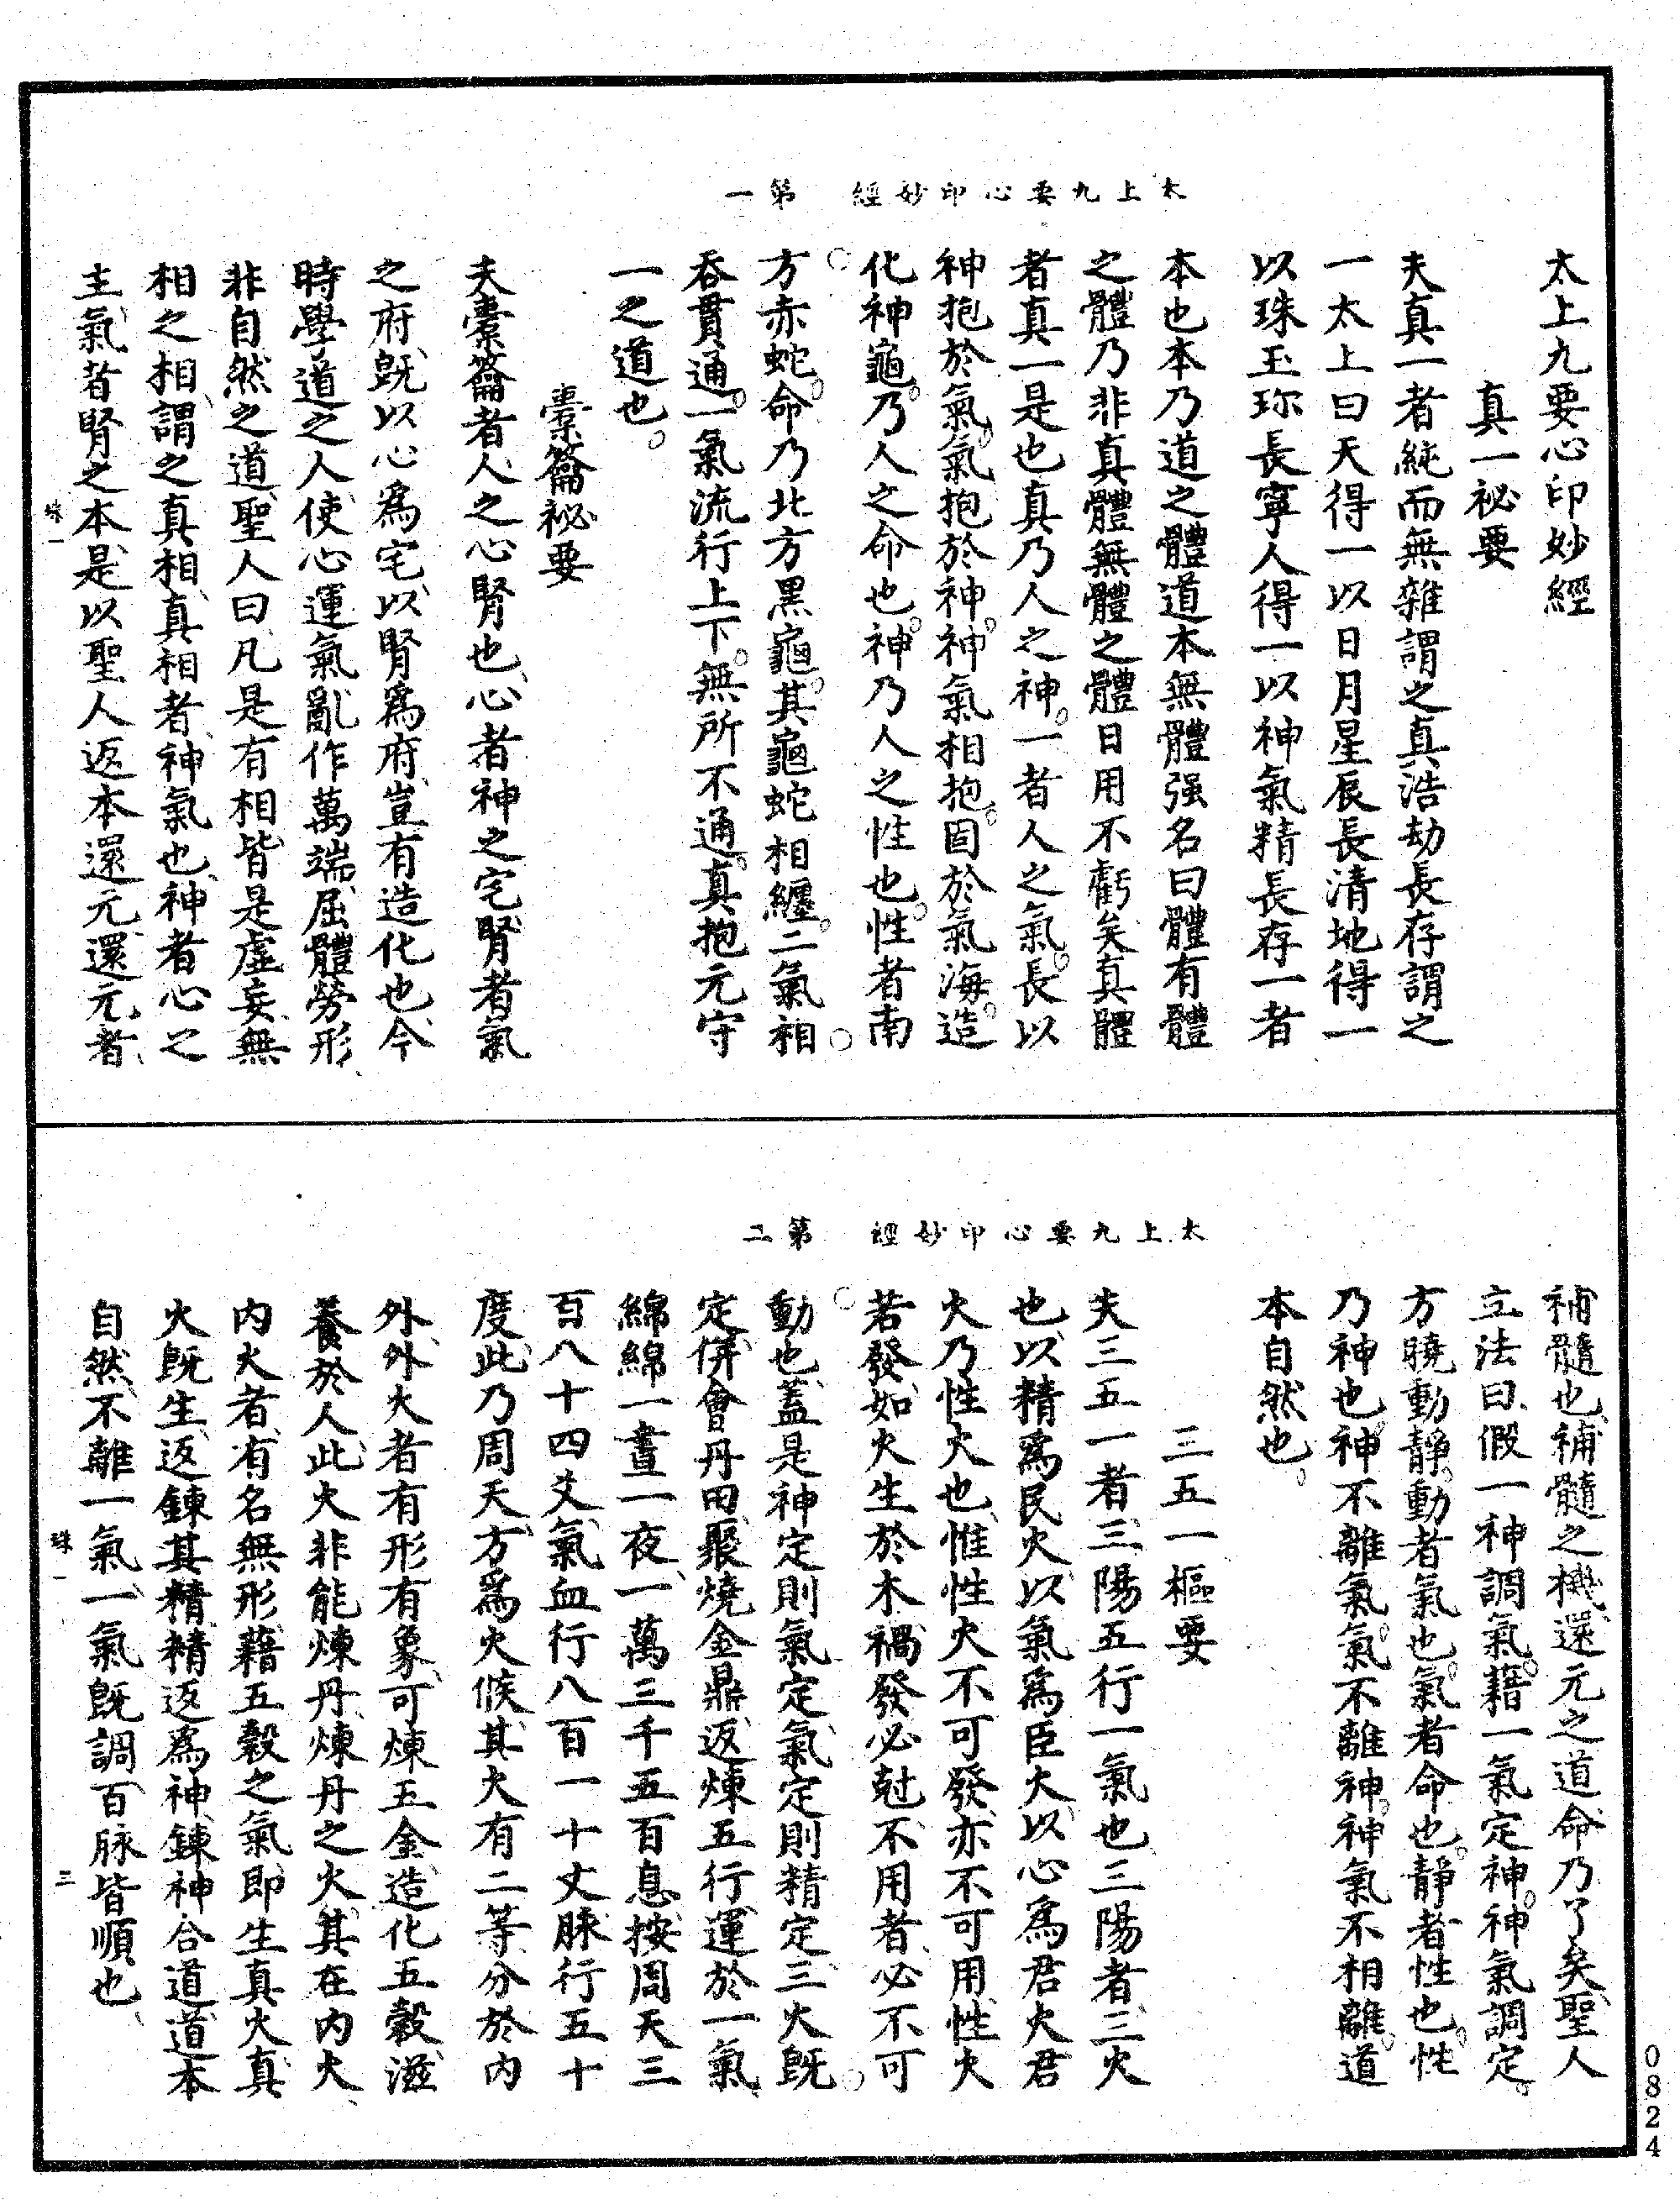 太上九要心印妙經　第一
太上九要心印妙經
真一祕要
夫真一者純而無雜謂之真浩劫長存謂之
一太上曰天得一以日月星辰長清地得一
以珠玉珎長寧人得一以神氣精長存一者
本也本乃道之體道本無體强名曰體有體
之體乃非真體無體之體日用不虧矣真體
者真一是也真乃人之神一者人之氣長以
神抱於氣氣抱於神神氣相抱固於氣海造
化神龜乃人之命也神乃人之性也性者南
方赤蛇命乃北方黑龜其龜蛇相纏二氣相
吞貫通一氣流行上下無所不通真抱元守
一之道也
橐籥祕要
夫橐籥者人之心腎也心者神之宅腎者氣
之府旣以心爲宅以腎爲府豈有造化也今
時學道之人使心運氣亂作萬端屈體勞形
非自然之道聖人曰凡是有相皆是虛妄無
相之相謂之真相真相者神氣也神者心之
主氣者腎之本是以聖人返本還元還元者
珠一
太上九要心印妙經　第二
補髓也補髓之機還元之道命乃了矣聖人
立法曰假一神調氣藉一氣定神神氣調定
方曉動靜動者氣也氣者命也靜者性也性
乃神也神不離氣氣不離神神氣不相離道
本自然也
三五一樞要
夫三五一者三陽五行一氣也三陽者三火
也以精爲民火以氣爲臣火以心爲君火君
火乃性火也惟性火不可發亦不可用性火
若發如火生於木禍發必尅不用者必不可
動也蓋是神定則氣定氣定則精定三火旣
定併會丹田聚燒金鼎返煉五行運於一氣
綿綿一晝一夜一萬三千五百息按周天三
百八十四爻氣血行八百一十丈脉行五十
度此乃周天方爲火候其火有二等分於內
外外火者有形有象可煉五金造化五穀滋
養於人此火非能煉丹煉丹之火其在內火
內火者有名無形藉五穀之氣即生真火真
火旣生返鍊其精精返爲神鍊神合道道本
自然不離一氣一氣旣調百脉皆順也
珠一
三
0824